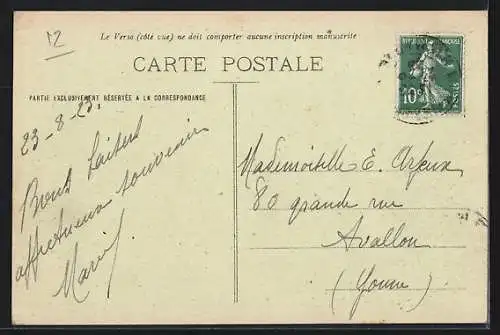 12
Le Verso (côté vue) ne doit comporter aucune inscription manuscrite
CARTE POSTALE
PARTIE EXCLUSIVEMENT RÉSERVÉE A LA CORRESPONDANCE
REPUBLIQUE FRANÇAISE
10
POSTES
23-8-23.
Bons baisers
affectueux souvenir
Marie
Mademoiselle E. Arfeux
80 grande rue
Avallon
(Yonne)